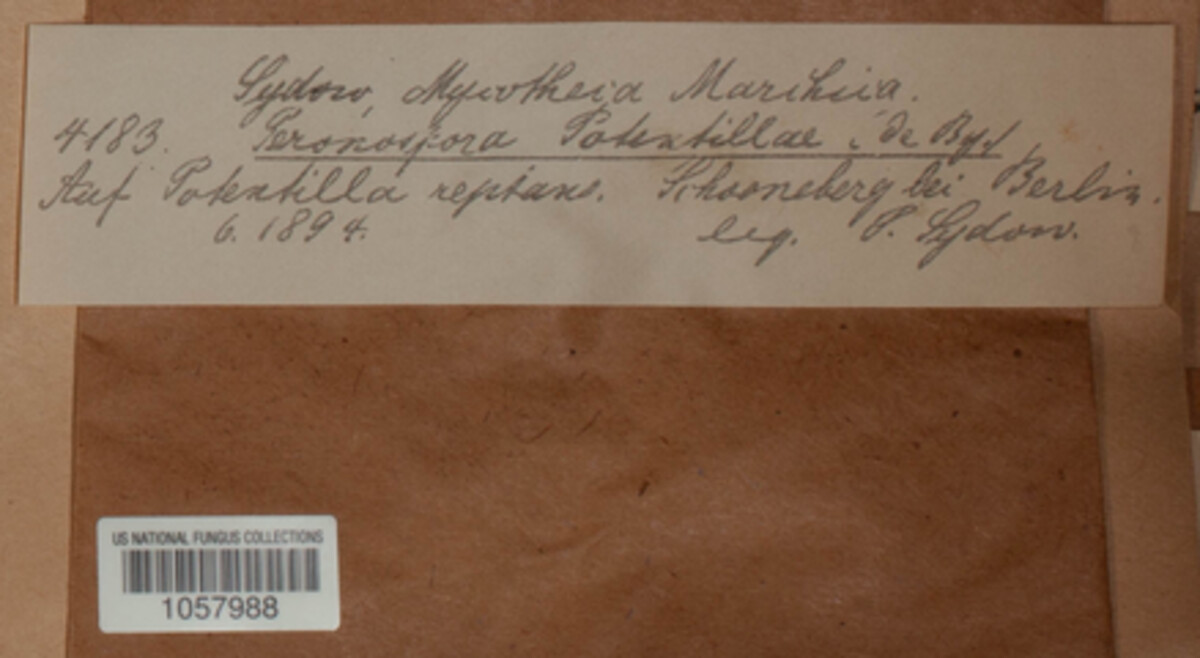 Sydow, Mycotheca Marchica.
4183. Peronospora Potentillae (de By.)
Auf Potentilla reptans. Schoeneberg bei Berlin.
6. 1894. leg. P. Sydow.
US NATIONAL FUNGUS COLLECTIONS
1057988